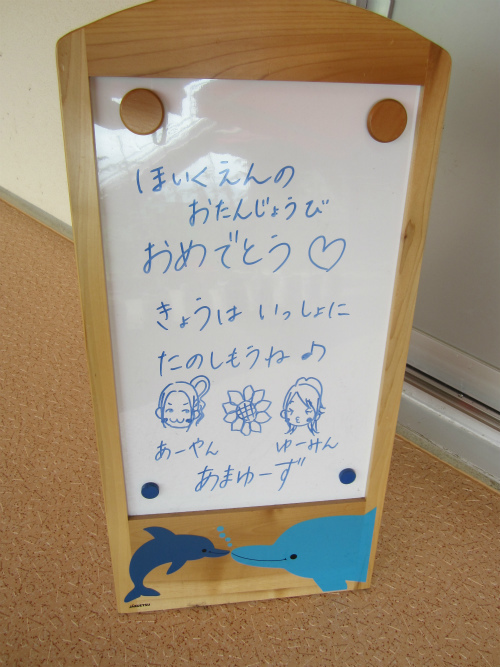 ほいくえんの
おたんじょうび
おめでとう♡
きょうは いっしょに
たのしもうね♪
あーやん ゆーみん
あまゆーず